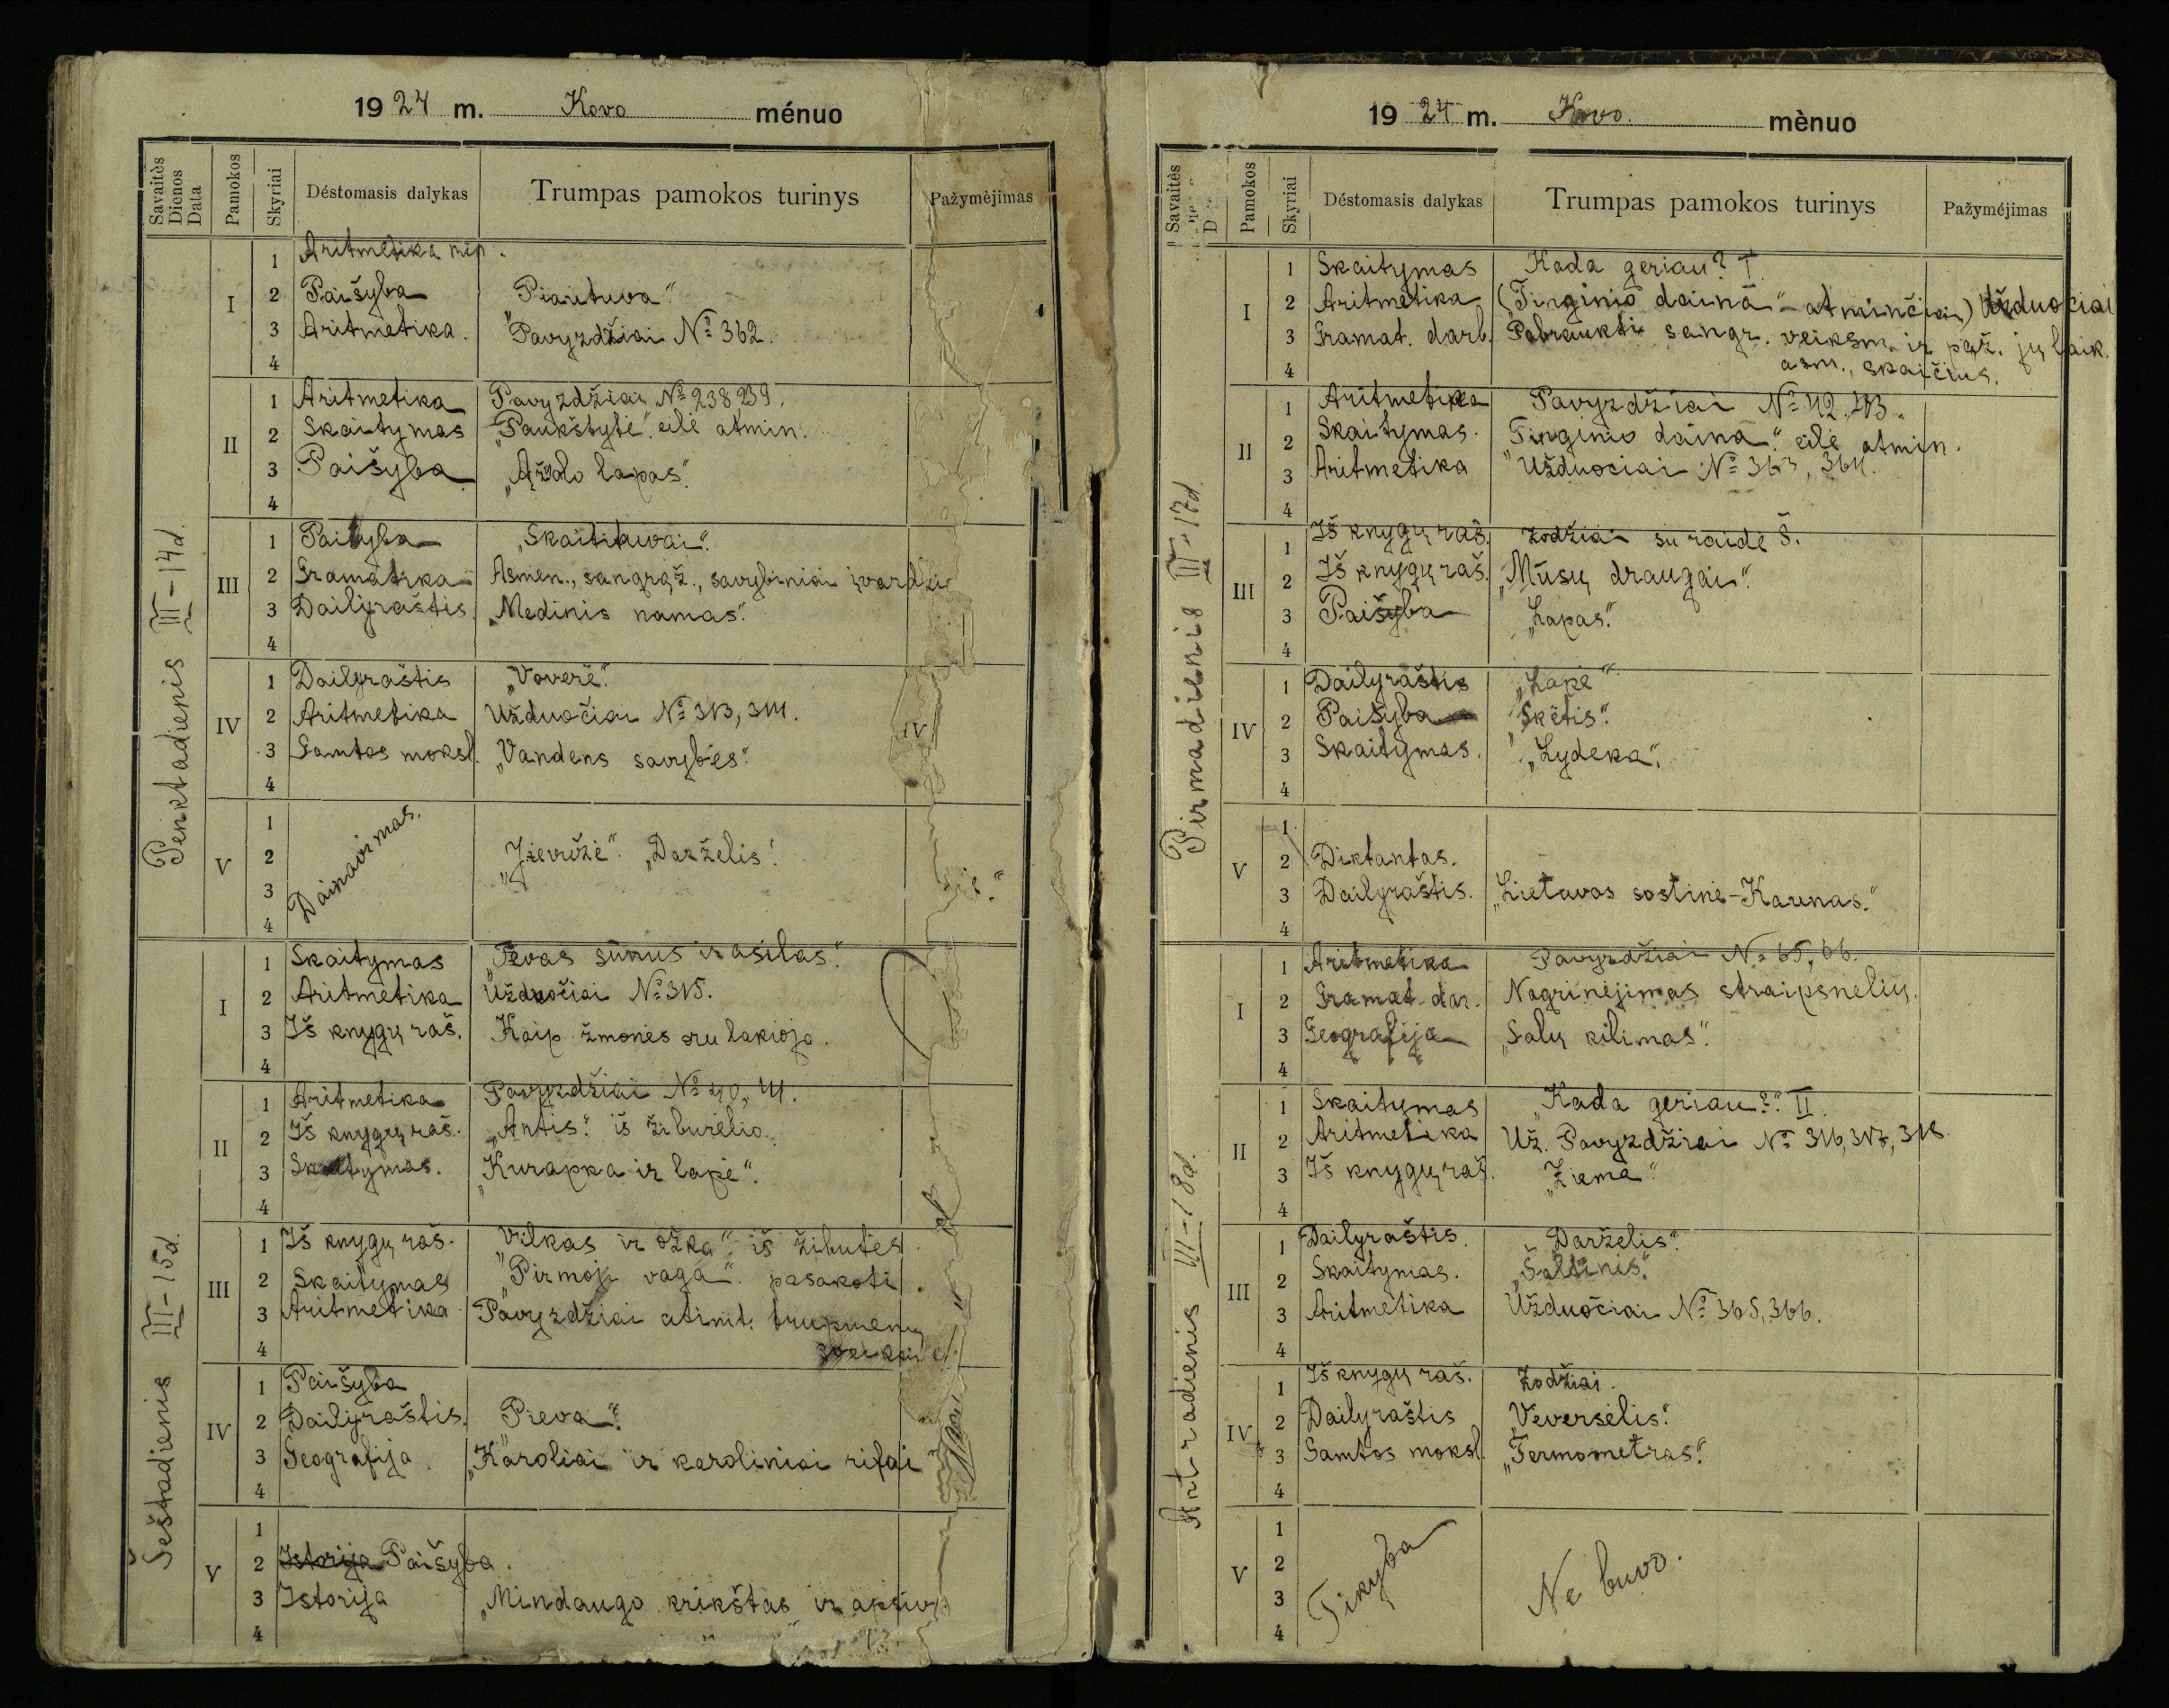 1924 m. Kovo ménuo
Savaitės Dienos Data
Pamokos
Skyriai
Déstomasis dalykas
Trumpas pamokos turinys
Pažymėjimas
Penktadienis III-14d.
I
1 Aritmetika
2 Paišyba „Piautuva“
3 Aritmetika. Pavyzdžiai № 362.
4
II
1 Aritmetika Pavyzdžiai № 238 239.
2 Skaitymas „Paukštytė“. eilė atmin.
3 Paišyba „Ąžolo lapas“.
4
III
1 Paišyba „Skaitituvai“.
2 Gramatika Asmen., sangrąž., savybiniai įvardžiai
3 Dailyraštis „Medinis namas“.
4
IV
1 Dailyraštis „Voverė“.
2 Aritmetika Užduočiai № 313, 314.
3 Gamtos moksl. „Vandens savybės“.
4
V
1
2 Dainavimas. „Jievužė“. „Darželis“
3
4
Šeštadienis III-15d.
I
1 Skaitymas „Tėvas sūnus ir asilas“.
2 Aritmetika Užduočiai № 315.
3 Iš knygų raš. Kaip žmonės oru lakioja.
4
II
1 Aritmetika Pavyzdžiai № 40, 41.
2 Iš knygų raš. „Antis“. iš žiburėlio.
3 Skaitymas. „Kurapka ir lapė“.
4
III
1 Iš knygų raš. „Vilkas ir ožka“. iš žibutės.
2 Skaitymas „Pirmoji vaga“. pasakoti.
3 Aritmetika Pavyzdžiai atimt. trupmenų
4
IV
1 Paišyba
2 Dailyraštis. „Pieva“.
3 Geografija. „Karoliai ir karoliniai rifai“
4
V
1
2 Istorija Paišyba.
3 Istorija „Mindaugo krikštas ir
4
1924 m. Kovo. mènuo
Savaitės
Pamokos
Skyriai
Déstomasis dalykas
Trumpas pamokos turinys
Pažymėjimas
Pirmadienis III-17d.
I
1 Skaitymas Kada geriau? I
2 Aritmetika („Tinginio daina“ - atminčiai) Užduočiai
3 Gramat. darb. Pabraukti sangr. veiksm. ir paž. jų laik.
4 asm., skaičius.
II
1 Aritmetika Pavyzdžiai № 42, 43.
2 Skaitymas. „Tinginio daina“. eilė atmin.
3 Aritmetika Užduočiai № 363, 364.
4
III
1 Iš knygų raš. Žodžiai su raide Š.
2 Iš knygų raš. „Mūsų draugai“.
3 Paišyba „Lapas“.
4
IV
1 Dailyraštis „Lapė“
2 Paišyba „Skėtis“.
3 Skaitymas. „Lydeka“.
4
V
1
2 Diktantas.
3 Dailyraštis. „Lietuvos sostinė - Kaunas.“
4
Antradienis III-18d.
I
1 Aritmetika Pavyzdžiai № 65, 66.
2 Gramat. dar. Nagrinėjimas straipsnelių.
3 Geografija „Salų kilimas“.
4
II
1 Skaitymas „Kada geriau?“. II.
2 Aritmetika Už. Pavyzdžiai № 316, 317, 318
3 Iš knygų raš. „Žiema“
4
III
1 Dailyraštis. „Darželis“.
2 Skaitymas. „Šaltinis“.
3 Aritmetika Užduočiai № 365, 366.
4
IV
1 Iš knygų raš. Žodžiai.
2 Dailyraštis „Vėversėlis“.
3 Gamtos moksl. „Termometras“.
4
V
1
2 Tikyba Ne buvo.
3
4